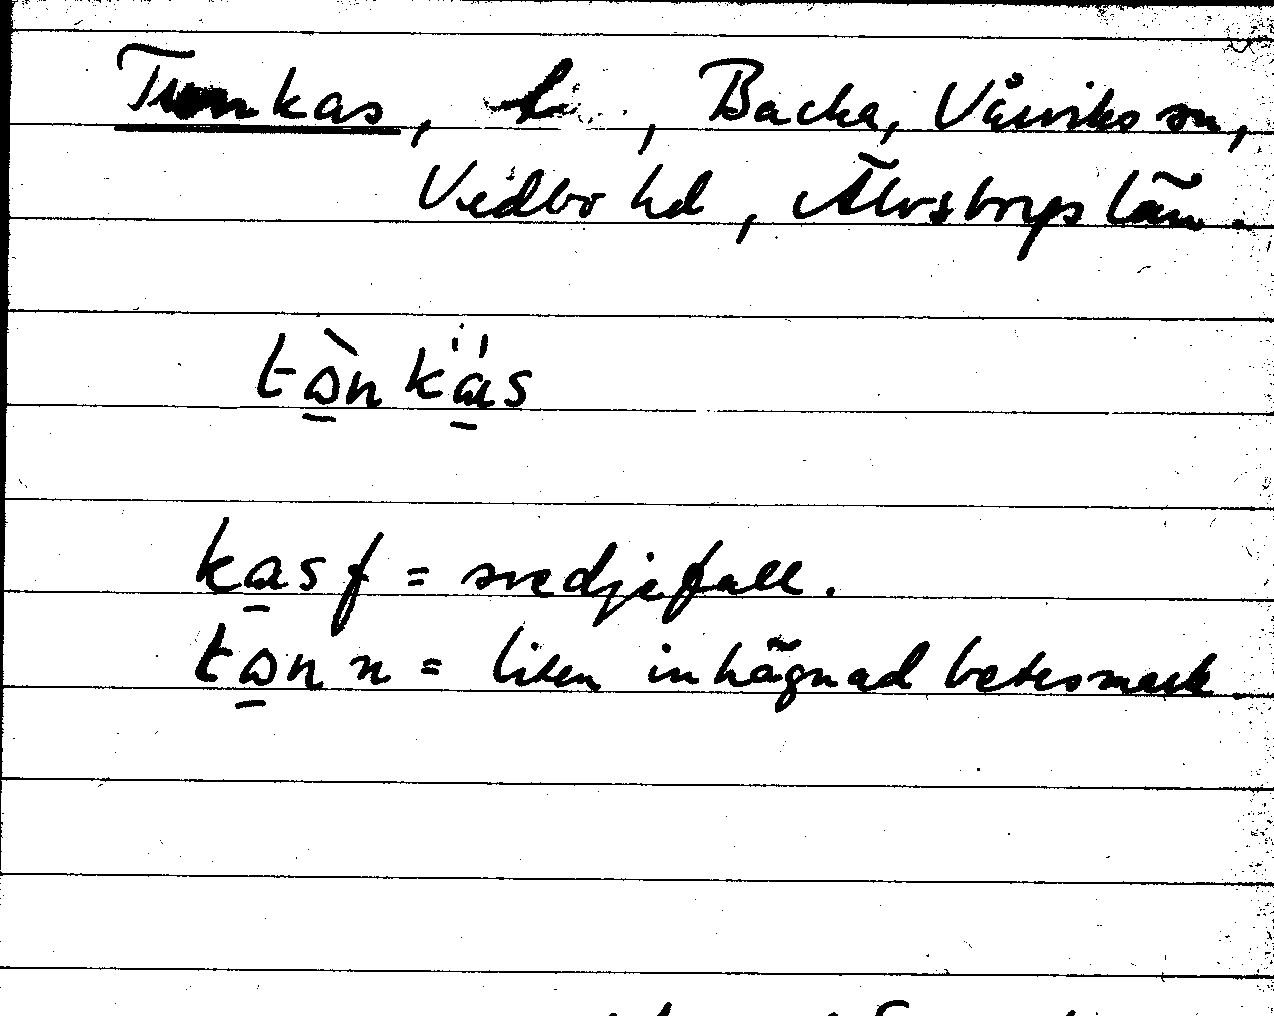 Tunkas, , Backa, Vårviks sn,
Vedbo hd, Älvsborgs län.
tɷ̀nkas
kas f = svedjefall.
tɷn n = liten inhägnad betesmark.